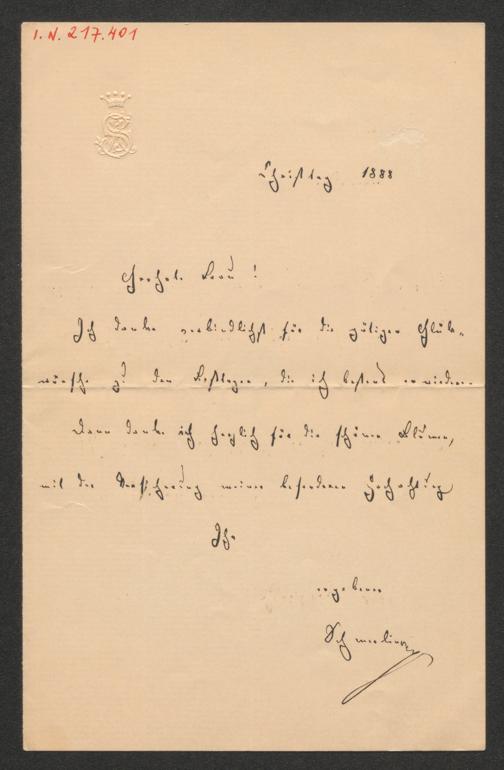 I.N. 217.401
Christtag 1888
Geehrte Frau!
Ich danke verbindlichst für die gütigen Glück-
wünsche zu den Festtagen, die ich bestens erwiedere.
Dann danke ich herzlich für die schönen Blumen,
mit der Versicherung meiner besonderen Hochachtung
Ihr
ergebener
Schmerling